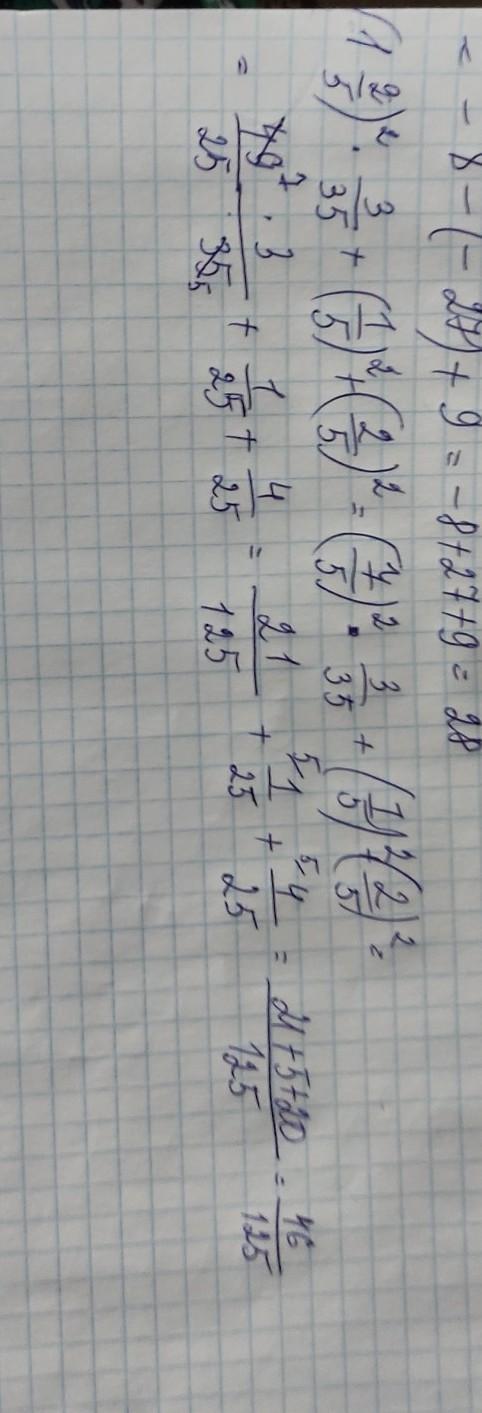 = - 8 - (- 27) + 9 = - 8 + 27 + 9 = 28
(1 2/5)² · 3/35 + (1/5)² + (2/5)² = (7/5)² · 3/35 + (1/5)² + (2/5)² =
= 49⁷ · 3 / 25 · 35₅ + 1/25 + 4/25 = 21/125 + ⁵1/25 + ⁵4/25 = 21+5+20/125 = 46/125